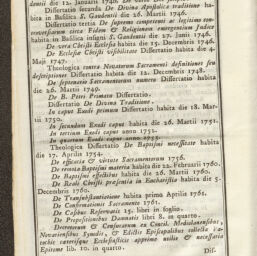 damii die 12. Januarii 1746.
Dissertatio secunda De Divina Apostolica traditione habita in Basilica S. Gaudentii die 26. Martii 1746.
Dissertatio tertia De supremo competenti ac legitimo controversiarum circa Fidem & Religionem emergentium Judice habita in Basilica insigni S. Gaudentii die 27. Junii 1746.
De vera Christi Ecclesia habita die 15. Decembris 1746.
De Ecclesiæ Christi visibilitate Dissertatio habita die 4. Maji 1747.
Theologica contra Novatorum Sacramenti definitiones seu descriptiones Dissertatio habita die 12. Decembris 1748.
De septenario Sacramentorum numero Dissertatio habita die 26. Martii 1749.
De B. Petri Primatu Dissertatio.
Dissertatio De Divina Traditione.
In caput primum Exodi Dissertatio habita die 18. Martii 1750.
In secundum Exodi caput habita die 26. Martii 1751.
In tertium Exodi caput anno 1752.
In quartum Exodi caput anno 1753.
Theologica Dissertatio De Baptismi necessitate habita die 17. Aprilis 1754.
De efficacia & virtute Sacramentorum 1756.
De remota Baptismi materia habita die 22. Februarii 1760.
De Baptismi effectibus habita die 26. Martii 1760.
De Reali Christi præsentia in Eucharistia habita die 5. Decembris 1760.
De Transubstantiatione habita primo Aprilis 1761.
De Confirmationis Sacramento 1761.
De Casibus Reservatis 15. liber in foglio.
De Propositionibus Damnatis libri 8. in quarto.
Decretorum & Censurarum ex Concil. Mediolanensibus, Novariensibus Synodis, & Edictis Episcopalibus collecta Parochis cæterisque Ecclesiasticis apprime utilis & necessaria Epitome lib. 10. in quarto.
Dis-